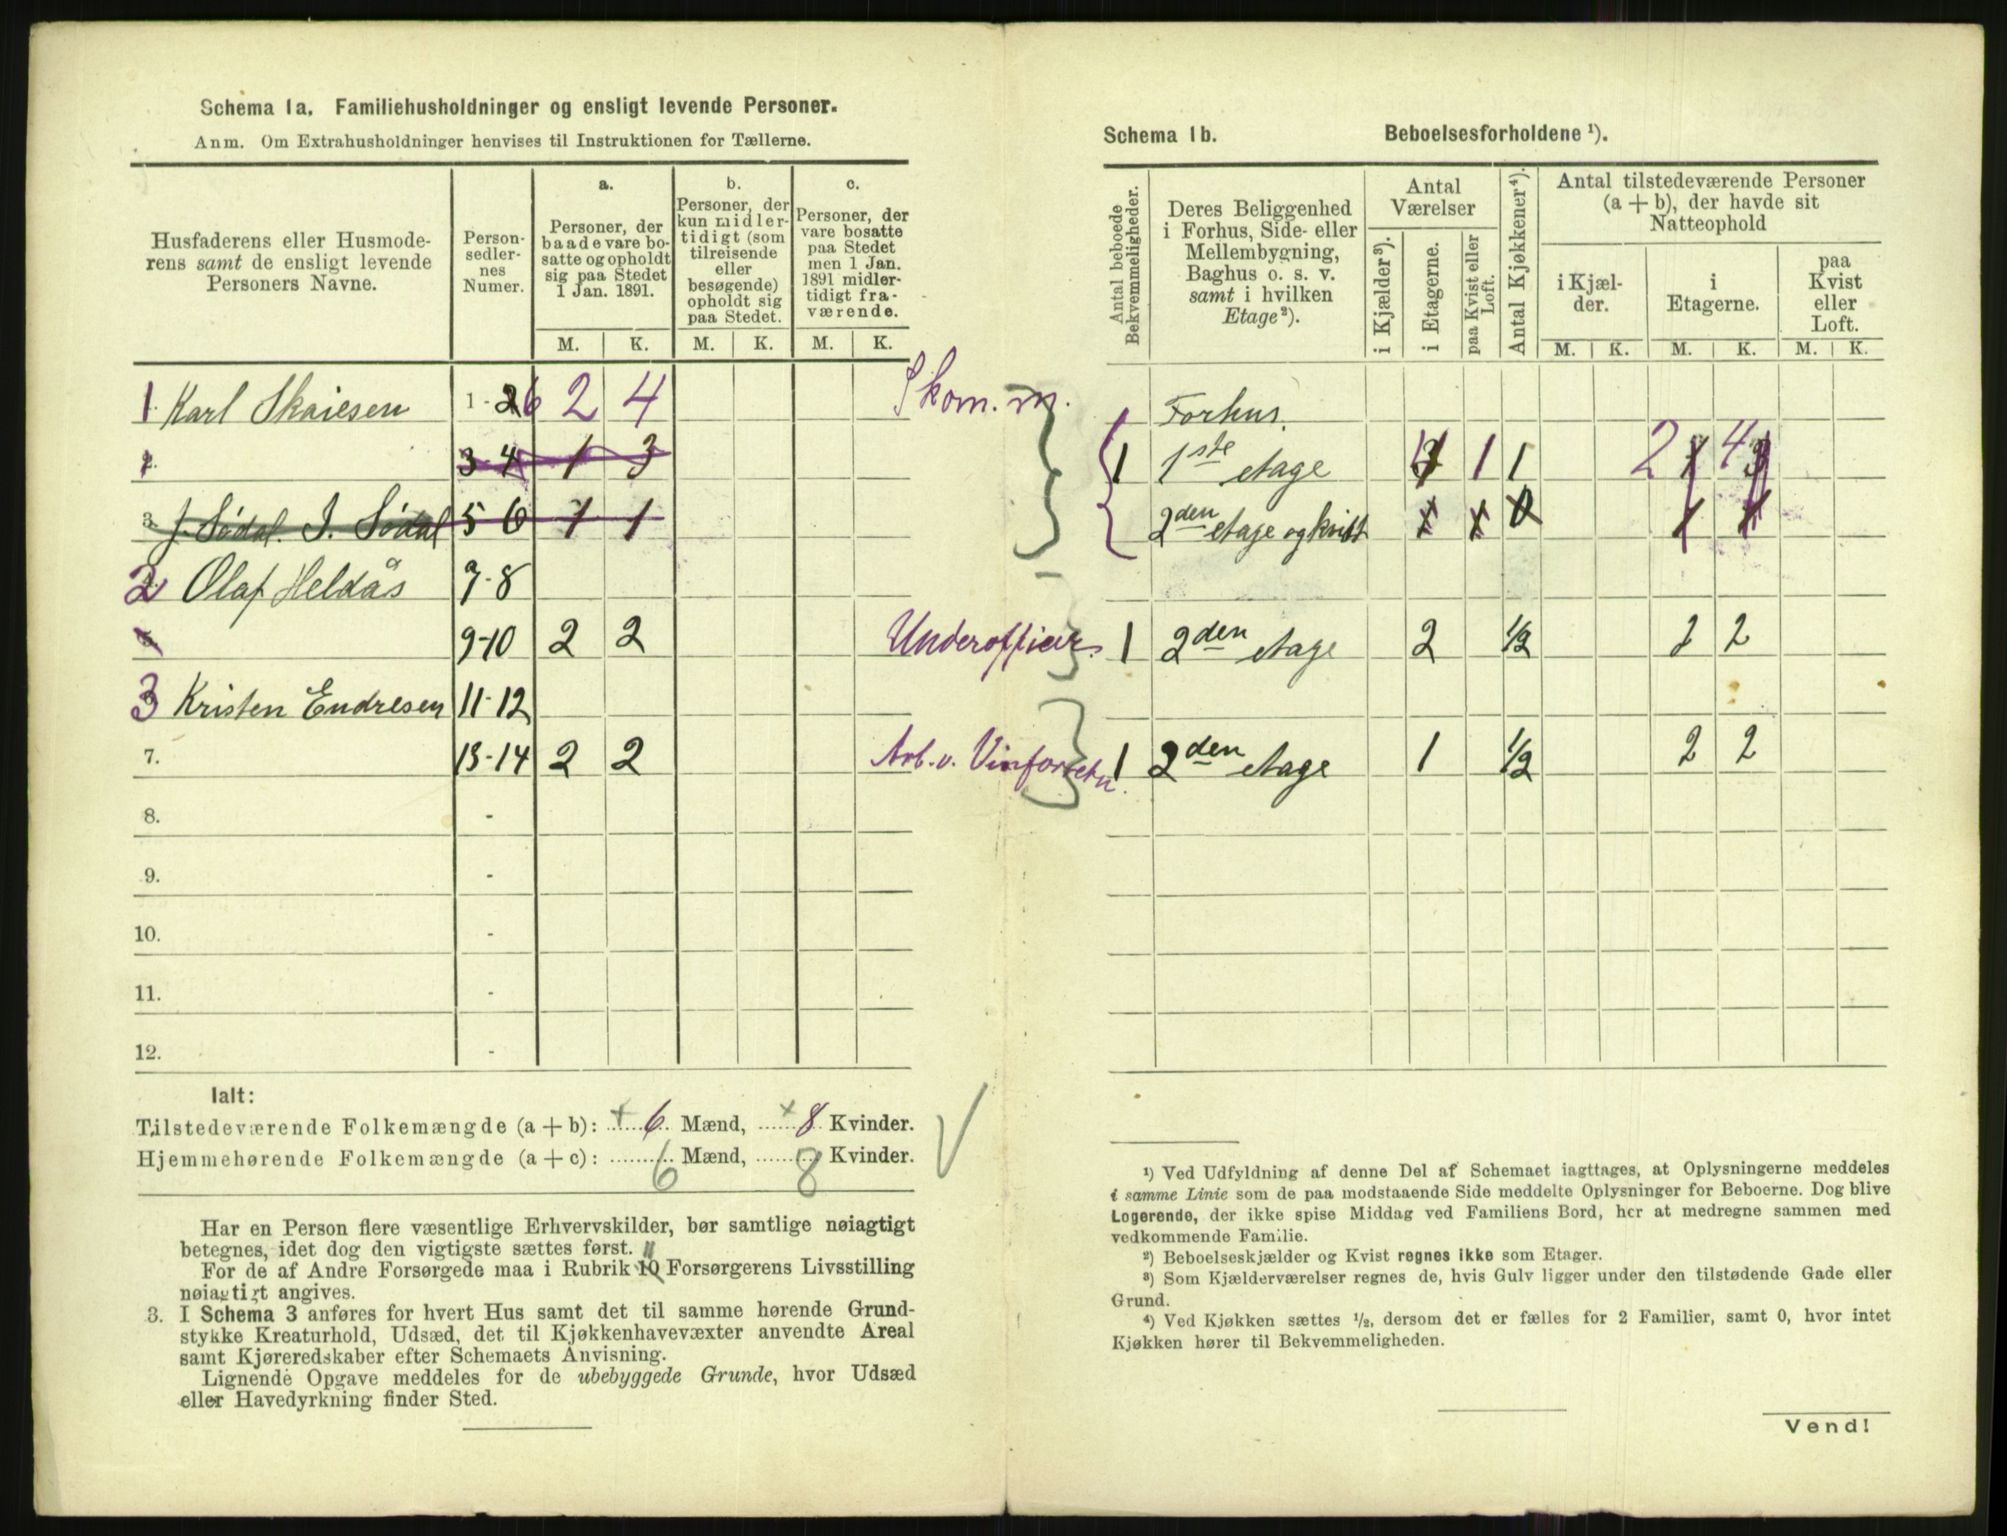 Schema 1a. Familiehusholdninger og ensligt levende Personer.
Anm. Om Extrahusholdninger henvises til Instruktionen for Tællerne.
Husfaderens eller Husmode-
rens samt de ensligt levende
Personers Navne.
Person-
sedler-
nes
Numer.
a.
Personer, der
baade vare bo-
satte og opholdt
sig paa Stedet
1 Jan. 1891.
b.
Personer, der
kun midler-
tidigt (som
tilreisende
eller
besøgende)
opholdt sig
paa Stedet.
c.
Personer, der
vare bosatte
paa Stedet
men 1 Jan.
1891 midler-
tidigt fra-
værende.
M. K. M. K. M. K.
1 Karl Skaiesen 1-6 2 4 Skom.m.
2. 3-4 1 3
3. J. Sødal. I. Sødal 5 6 1 1
2 Olaf Heldås 7-8
9-10 2 2 Underofficier.
3 Kristen Endresen 11-12
7. 13-14 2 2 Arb. v. Vinforretn.
8. -
9. -
10. -
11. -
12. -
Ialt:
Tilstedeværende Folkemængde (a + b): 6 Mænd, 8 Kvinder.
Hjemmehørende Folkemængde (a + c): 6 Mænd, 8 Kvinder.
Har en Person flere væsentlige Erhvervskilder, bør samtlige nøiagtigt
betegnes, idet dog den vigtigste sættes først.
For de af Andre Forsørgede maa i Rubrik 10 11 Forsørgerens Livsstilling
nøiagtigt angives.
3. I Schema 3 anføres for hvert Hus samt det til samme hørende Grund-
stykke Kreaturhold, Udsæd, det til Kjøkkenhavevæxter anvendte Areal
samt Kjøreredskaber efter Schemaets Anvisning.
Lignende Opgave meddeles for de ubebyggede Grunde, hvor Udsæd
eller Havedyrkning finder Sted.
Schema 1b. Beboelsesforholdene ¹).
Antal beboede
Bekvemmeligheder.
Deres Beliggenhed
i Forhus, Side- eller
Mellembygning,
Baghus o. s. v.
samt i hvilken
Etage²).
Antal
Værelser
i Kjælder³).
i Etagerne.
paa Kvist eller
Loft.
Antal Kjøkkener⁴).
Antal tilstedeværende Personer
(a + b), der havde sit
Natteophold
i Kjæl-
der.
i
Etagerne.
paa
Kvist
eller
Loft.
M. K. M. K. M. K.
Forhus.
1 1ste etage 1 1 2 4
2den etage og kvist 1 1 0 1 1
1 2den etage 2 1/2 2 2
1 2den etage 1 1/2 2 2
¹) Ved Udfyldning af denne Del af Schemaet iagttages, at Oplysningerne meddeles
i samme Linie som de paa modstaaende Side meddelte Oplysninger for Beboerne. Dog blive
Logerende, der ikke spise Middag ved Familiens Bord, her at medregne sammen med
vedkommende Familie.
²) Beboelseskjælder og Kvist regnes ikke som Etager.
³) Som Kjælderværelser regnes de, hvis Gulv ligger under den tilstødende Gade eller
Grund.
⁴) Ved Kjøkken sættes ½, dersom det er fælles for 2 Familier, samt 0, hvor intet
Kjøkken hører til Bekvemmeligheden.
Vend!